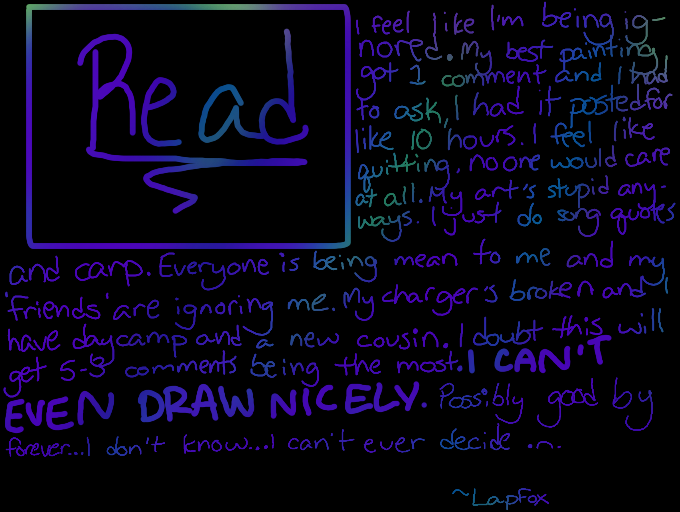 Read
I feel like I'm being ig-
nored. My best painting
got 1 comment and I had
to ask, I had it posted for
like 10 hours. I feel like
quitting, no one would care
at all. My art's stupid any-
ways. I just do song quotes
and carp. Everyone is being mean to me and my
'friends' are ignoring me. My charger's broken and I
have daycamp and a new cousin. I doubt this will
get 5-8 comments being the most. I CAN'T
EVEN DRAW NICELY. Possibly good by
forever...I don't know...I can't ever decide .n.
~LapFox